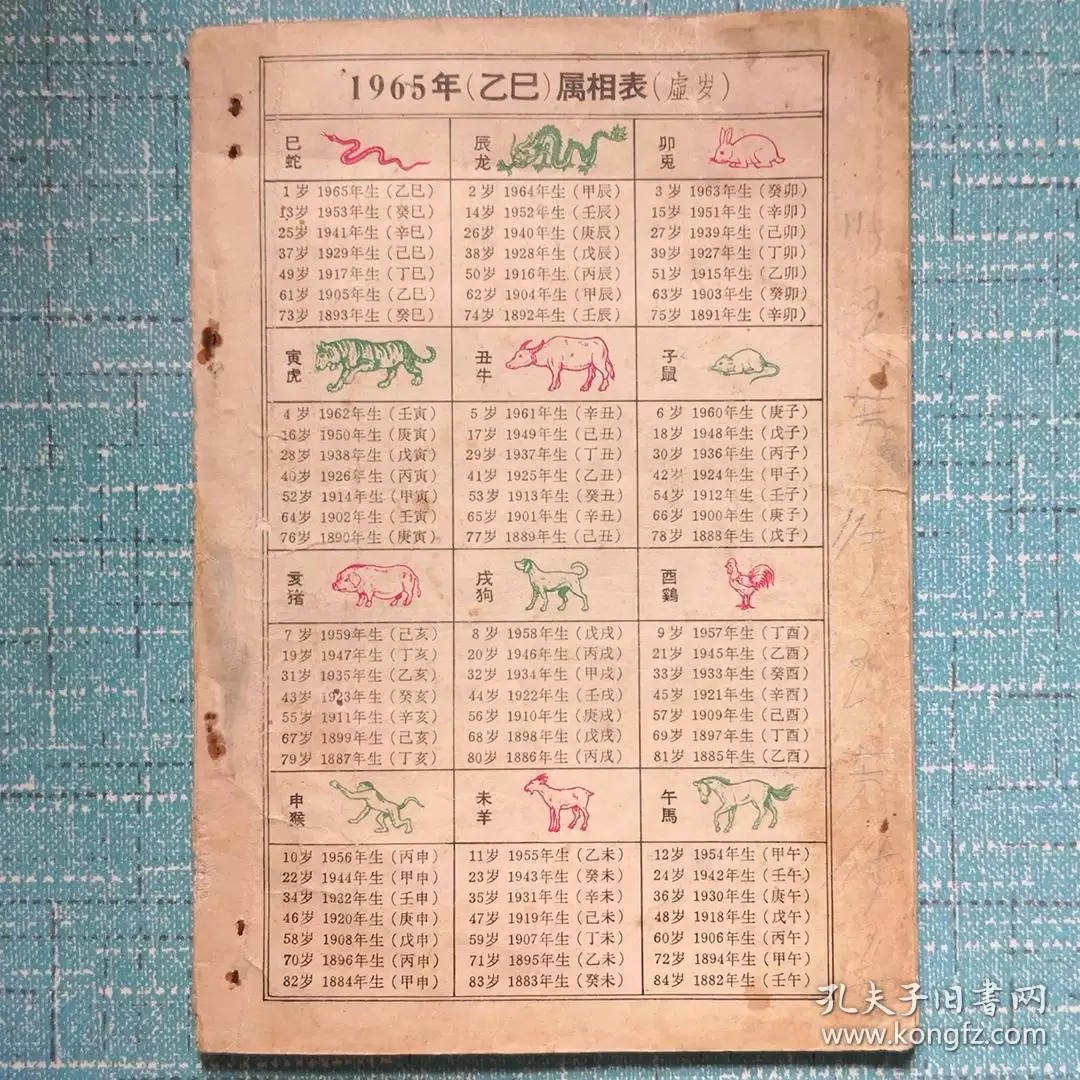 1965年（乙巳）属相表（虚岁）
巳蛇
1岁 1965年生（乙巳）
13岁 1953年生（癸巳）
25岁 1941年生（辛巳）
37岁 1929年生（己巳）
49岁 1917年生（丁巳）
61岁 1905年生（乙巳）
73岁 1893年生（癸巳）
辰龙
2岁 1964年生（甲辰）
14岁 1952年生（壬辰）
26岁 1940年生（庚辰）
38岁 1928年生（戊辰）
50岁 1916年生（丙辰）
62岁 1904年生（甲辰）
74岁 1892年生（壬辰）
卯兎
3岁 1963年生（癸卯）
15岁 1951年生（辛卯）
27岁 1939年生（己卯）
39岁 1927年生（丁卯）
51岁 1915年生（乙卯）
63岁 1903年生（癸卯）
75岁 1891年生（辛卯）
寅虎
4岁 1962年生（壬寅）
16岁 1950年生（庚寅）
28岁 1938年生（戊寅）
40岁 1926年生（丙寅）
52岁 1914年生（甲寅）
64岁 1902年生（壬寅）
76岁 1890年生（庚寅）
丑牛
5岁 1961年生（辛丑）
17岁 1949年生（己丑）
29岁 1937年生（丁丑）
41岁 1925年生（乙丑）
53岁 1913年生（癸丑）
65岁 1901年生（辛丑）
77岁 1889年生（己丑）
子鼠
6岁 1960年生（庚子）
18岁 1948年生（戊子）
30岁 1936年生（丙子）
42岁 1924年生（甲子）
54岁 1912年生（壬子）
66岁 1900年生（庚子）
78岁 1888年生（戊子）
亥猪
7岁 1959年生（己亥）
19岁 1947年生（丁亥）
31岁 1935年生（乙亥）
43岁 1923年生（癸亥）
55岁 1911年生（辛亥）
67岁 1899年生（己亥）
79岁 1887年生（丁亥）
戌狗
8岁 1958年生（戊戌）
20岁 1946年生（丙戌）
32岁 1934年生（甲戌）
44岁 1922年生（壬戌）
56岁 1910年生（庚戌）
68岁 1898年生（戊戌）
80岁 1886年生（丙戌）
酉鷄
9岁 1957年生（丁酉）
21岁 1945年生（乙酉）
33岁 1933年生（癸酉）
45岁 1921年生（辛酉）
57岁 1909年生（己酉）
69岁 1897年生（丁酉）
81岁 1885年生（乙酉）
申猴
10岁 1956年生（丙申）
22岁 1944年生（甲申）
34岁 1932年生（壬申）
46岁 1920年生（庚申）
58岁 1908年生（戊申）
70岁 1896年生（丙申）
82岁 1884年生（甲申）
未羊
11岁 1955年生（乙未）
23岁 1943年生（癸未）
35岁 1931年生（辛未）
47岁 1919年生（己未）
59岁 1907年生（丁未）
71岁 1895年生（乙未）
83岁 1883年生（癸未）
午馬
12岁 1954年生（甲午）
24岁 1942年生（壬午）
36岁 1930年生（庚午）
48岁 1918年生（戊午）
60岁 1906年生（丙午）
72岁 1894年生（甲午）
84岁 1882年生（壬午）
孔夫子旧書网
www.kongfz.com